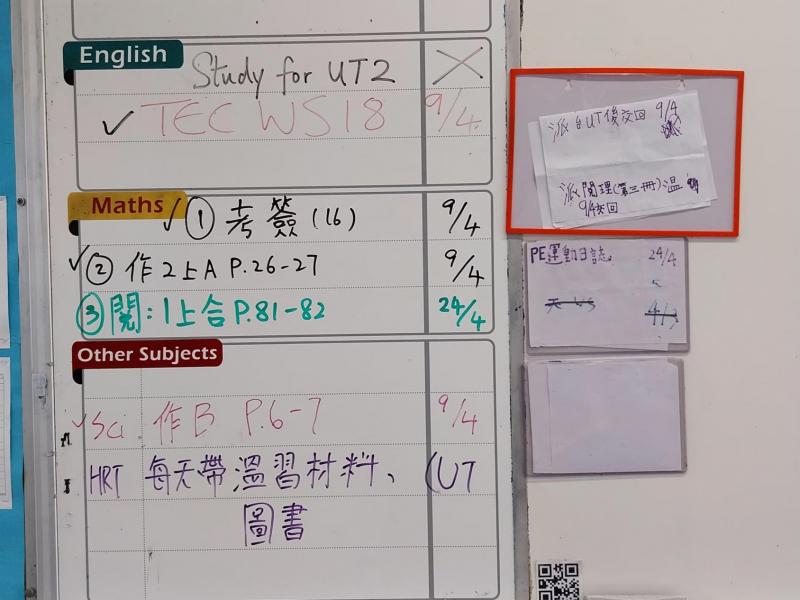 English
Study for UT2
✓ TEC WS18 9/4
Maths
✓ ① 考簽(16) 9/4
✓ ② 作2上A P.26-27 9/4
③ 閱:1上合P.81-82 24/4
Other Subjects
✓ Sci 作B P.6-7 9/4
HRT 每天帶溫習材料、(UT
圖書
派 UT後交回 9/4
派閱理(第三冊)溫
9/4交回
PE運動日誌 24/4